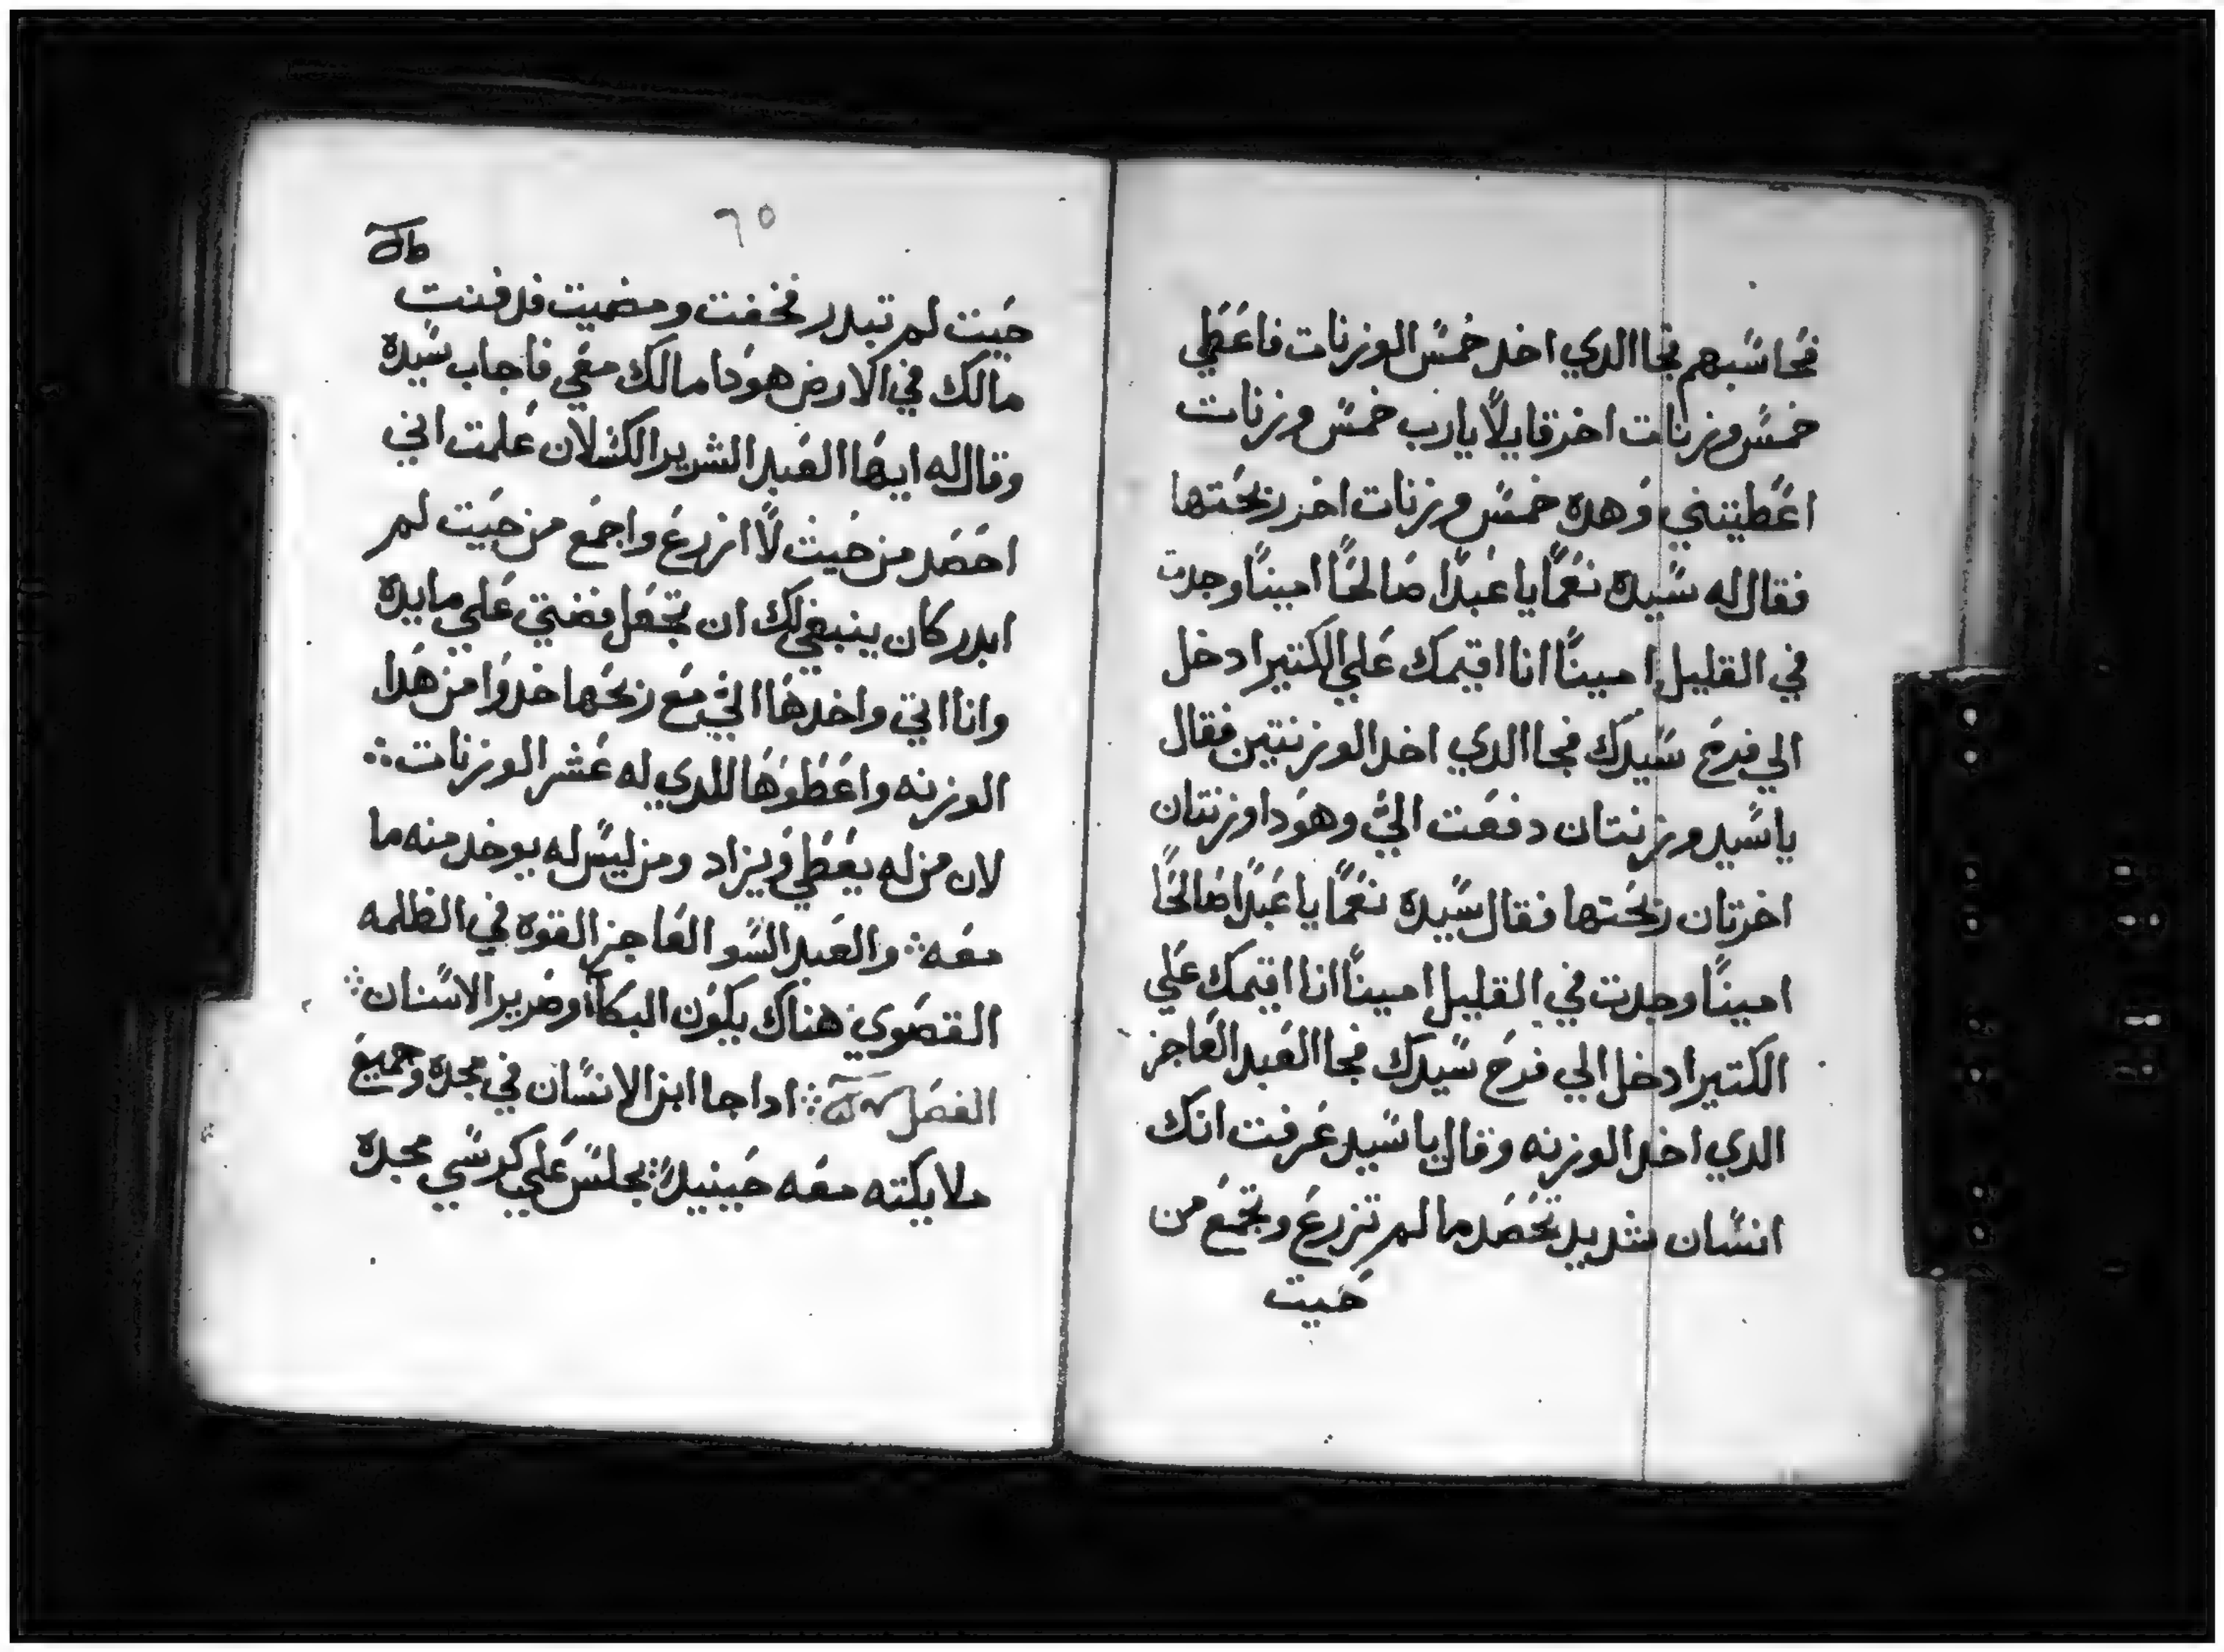 فحاسبهم فجا الدي اخد خمس الوزنات فاعطي
خمس وزنات اخر قايلًا يارب خمس وزنات
اعطيتني وهده خمس وزنات اخر ربحتها
فقال له سيده نعمًا يا عبدًا صالحًا امينًا وجدت
في القليل امينًا انا اقيمك علي الكتير ادخل
الي فرح سيدك فجا الدي اخد الوزنتين فقال
يا سيد وزنتان دفعت اليّ وهودا وزنتان
اخرتان ربحتها فقال سيده نعمًا يا عبدًا صالحًا
امينًا وجدت في القليل امينًا انا اقيمك علي
الكتير ادخل الي فرح سيدك فجا العبد العاجز
الدي اخد الوزنه وقال يا سيد عرفت انك
انسان شديد تحصد ما لم تزرع وتجمع من
حيت
٦٥
حيت لم تبدر فخفت ومضيت فدفنت
مالك في الارض هودا مالك معي فاجاب سيده
وقال له ايها العبد الشرير الكسلان علمت اني
احصد من حيث لا ازرع واجمع من حيت لم
ابدر كان ينبغي لك ان تجعل فضتي علي مايده
وانا اتي واخدها اليّ مع ربحها خدوا من هدا
الوزنه واعطوها للدي له عشر الوزنات
لان من له يعطي ويزاد ومن ليس له يوخد منه ما
معه والعبد السو العاجز القوه في الظلمه
القصوي هناك يكون البكآ وصرير الاسنان
الفصل اداجا ابن الانسان في مجده وجميع
ملايكته معه حينيدٍ يجلس علي كرسي مجده